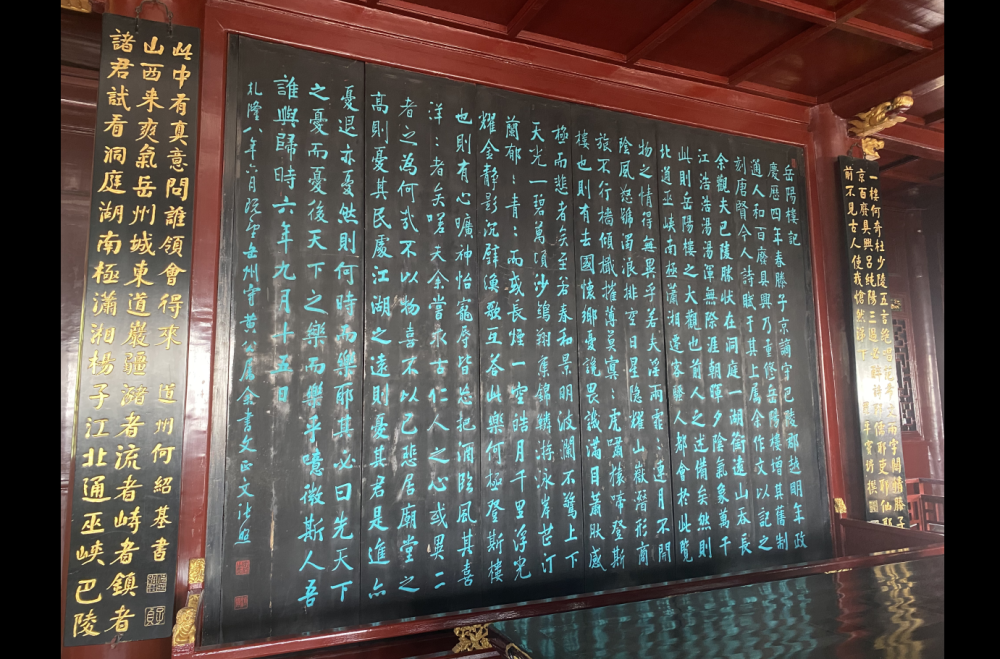 一樓何奇杜少陵五言絕唱范希文兩字關情滕子
京百廢具興呂純陽三過必醉詩耶儒耶吏耶仙耶
前不見古人使我愴然涕下 竇垿撰
岳陽樓記
慶歷四年春滕子京謫守巴陵郡越明年政
通人和百廢具興乃重修岳陽樓增其舊制
刻唐賢今人詩賦于其上屬余作文以記之
余觀夫巴陵勝狀在洞庭一湖銜遠山吞長
江浩浩湯湯渾無際涯朝暉夕陰氣象萬千
此則岳陽樓之大觀也前人之述備矣然則
北通巫峽南極瀟湘遷客騷人都會於此覽
物之情得無異乎若夫淫雨霏：連月不開
陰風怒號濁浪排空日星隱耀山嶽潛形商
旅不行檣傾檝摧薄莫冥：虎嘯猿啼登斯
樓也則有去國懷鄉憂讒畏譏滿目蕭然感
極而悲者矣至若春和景明波瀾不驚上下
天光一碧萬頃沙鷗翔集錦鱗游泳岸芷汀
蘭郁：青：而或長煙一空皓月千里浮光
耀金靜影沉璧漁歌互答此樂何極登斯樓
也則有心曠神怡寵辱皆忘把酒臨風其喜
洋：者矣嗟夫余嘗求古仁人之心或異二
者之為何哉不以物喜不以己悲居廟堂之
高則憂其民處江湖之遠則憂其君是進亦
憂退亦憂然則何時而樂耶其必曰先天下
之憂而憂後天下之樂而樂乎噫微斯人吾
誰與歸時六年九月十五日
乾隆八年六月既望岳州守黃公屬余書文正文張照
諸君試看洞庭湖南極瀟湘楊子江北通巫峽巴陵
山西来爽氣岳州城東道巖疆瀦者流者峙者鎮者
此中有真意問誰領會得來 道州何紹基書